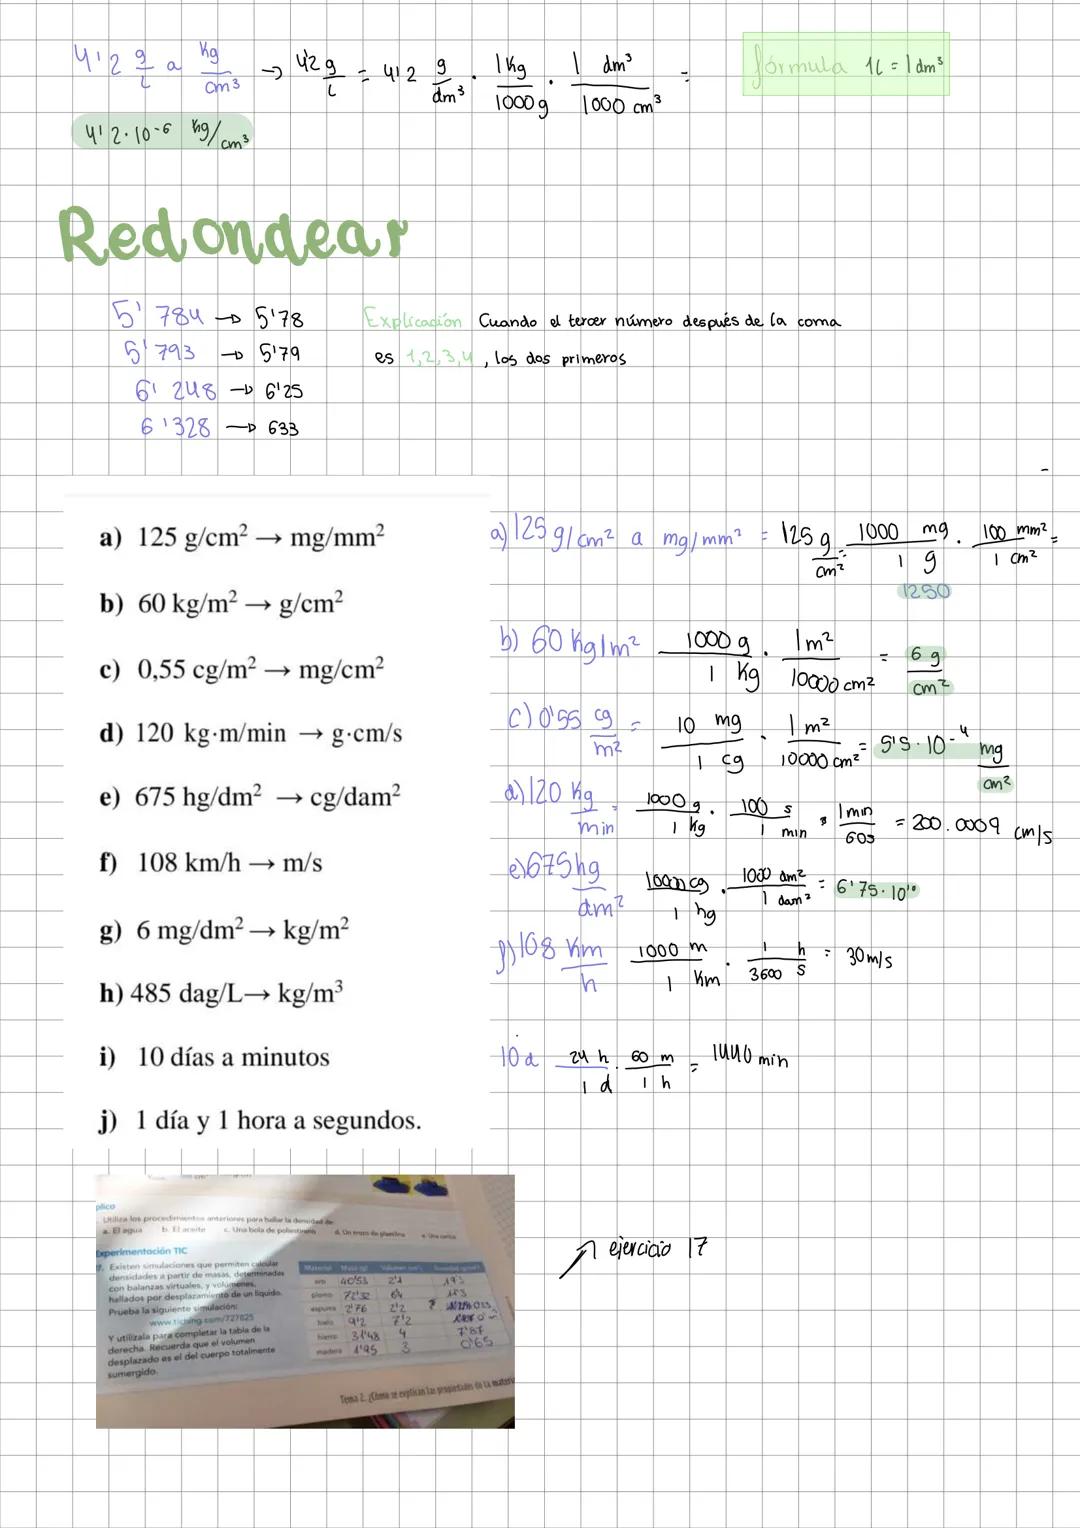 4'2 g/l a kg/cm3 → 4'2 g/L = 4'2 g/dm3 · 1kg/1000g · 1 dm3/1000 cm3 =
fórmula 1L = 1dm3
4'2·10-6 kg/cm3
Redondear
5'784 → 5'78
5'793 → 5'79
6'248 → 6'25
6'328 → 633
Explicación Cuando el tercer número después de la coma
es 1,2,3,4, los dos primeros
a) 125 g/cm² → mg/mm²
b) 60 kg/m² → g/cm²
c) 0,55 cg/m² → mg/cm²
d) 120 kg·m/min → g·cm/s
e) 675 hg/dm² → cg/dam²
f) 108 km/h → m/s
g) 6 mg/dm² → kg/m²
h) 485 dag/L → kg/m³
i) 10 días a minutos
j) 1 día y 1 hora a segundos.
a) 125 g/cm² a mg/mm² = 125 g/cm² = 1000 mg/1 g · 100 mm²/1 cm² =
1250
b) 60 kg/m² 1000 g/1 kg · 1 m²/10000 cm² = 6 g/cm²
c) 0'55 cg/m² = 10 mg/1 cg · 1 m²/10000 cm² = 5'5·10-4 mg/cm²
d) 120 kg/min = 1000 g/1 kg · 100 s/1 min · 1min/60s = 200.000g cm/s
e) 675 hg/dm² 10000 cg/1 hg · 1000 dm²/1 dam² = 6'75·10¹⁰
f) 108 km/h 1000 m/1 km · 1 h/3600 s = 30 m/s
10 d 24 h/1 d · 60 m/1 h = 1440 min
plico
Utiliza los procedimientos anteriores para hallar la densidad de
a. El agua b. El aceite c. Una bola de poliestireno d. Un trozo de plastilina
Experimentación TIC
7. Existen simulaciones que permiten calcular
densidades a partir de masas, determinadas
con balanzas virtuales, y volúmenes,
hallados por desplazamiento de un líquido.
Prueba la siguiente simulación:
www.tiching.com/727825
Y utilízala para completar la tabla de la
derecha. Recuerda que el volumen
desplazado es el del cuerpo totalmente
sumergido.
Material Masa (g) Volumen (cm³)
oro 40'53 2'1 19'3
plomo 72'32 6'4 11'3
espuma 2'76 2'2
hielo 9'2 7'2
hierro 31'48 4 7'87
madera 1'95 3 0'65
Tema 2. ¿Cómo se explican las propiedades de la materia
ejercicio 17